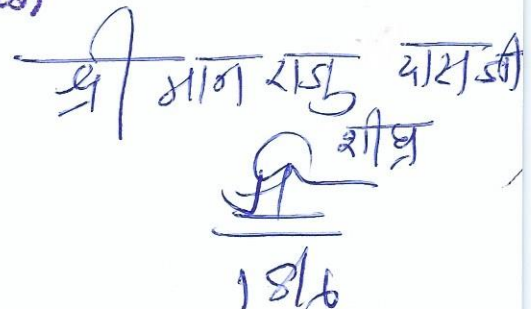 श्री मान राजु दास जी
शीघ्र
18/6